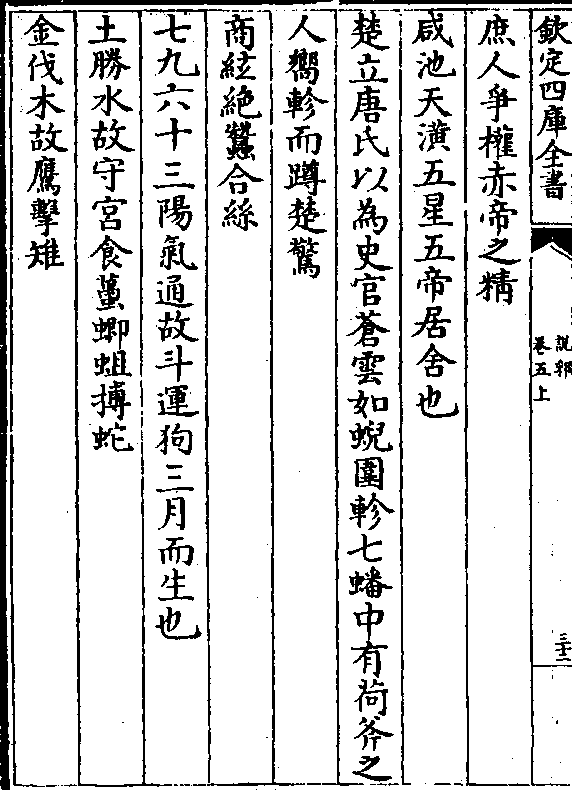 欽定四庫全書
說郛
卷五上
三十二
庶人爭權赤帝之精
咸池天潢五星五帝居舍也
楚立唐氏以為史官蒼雲如蜺圍軫七蟠中有荷斧之
人嚮軫而蹲楚驚
商絃絶蠶合絲
七九六十三陽氣通故斗運狗三月而生也
土勝水故守宮食蠆蝍蛆搏蛇
金伐木故鷹擊雉